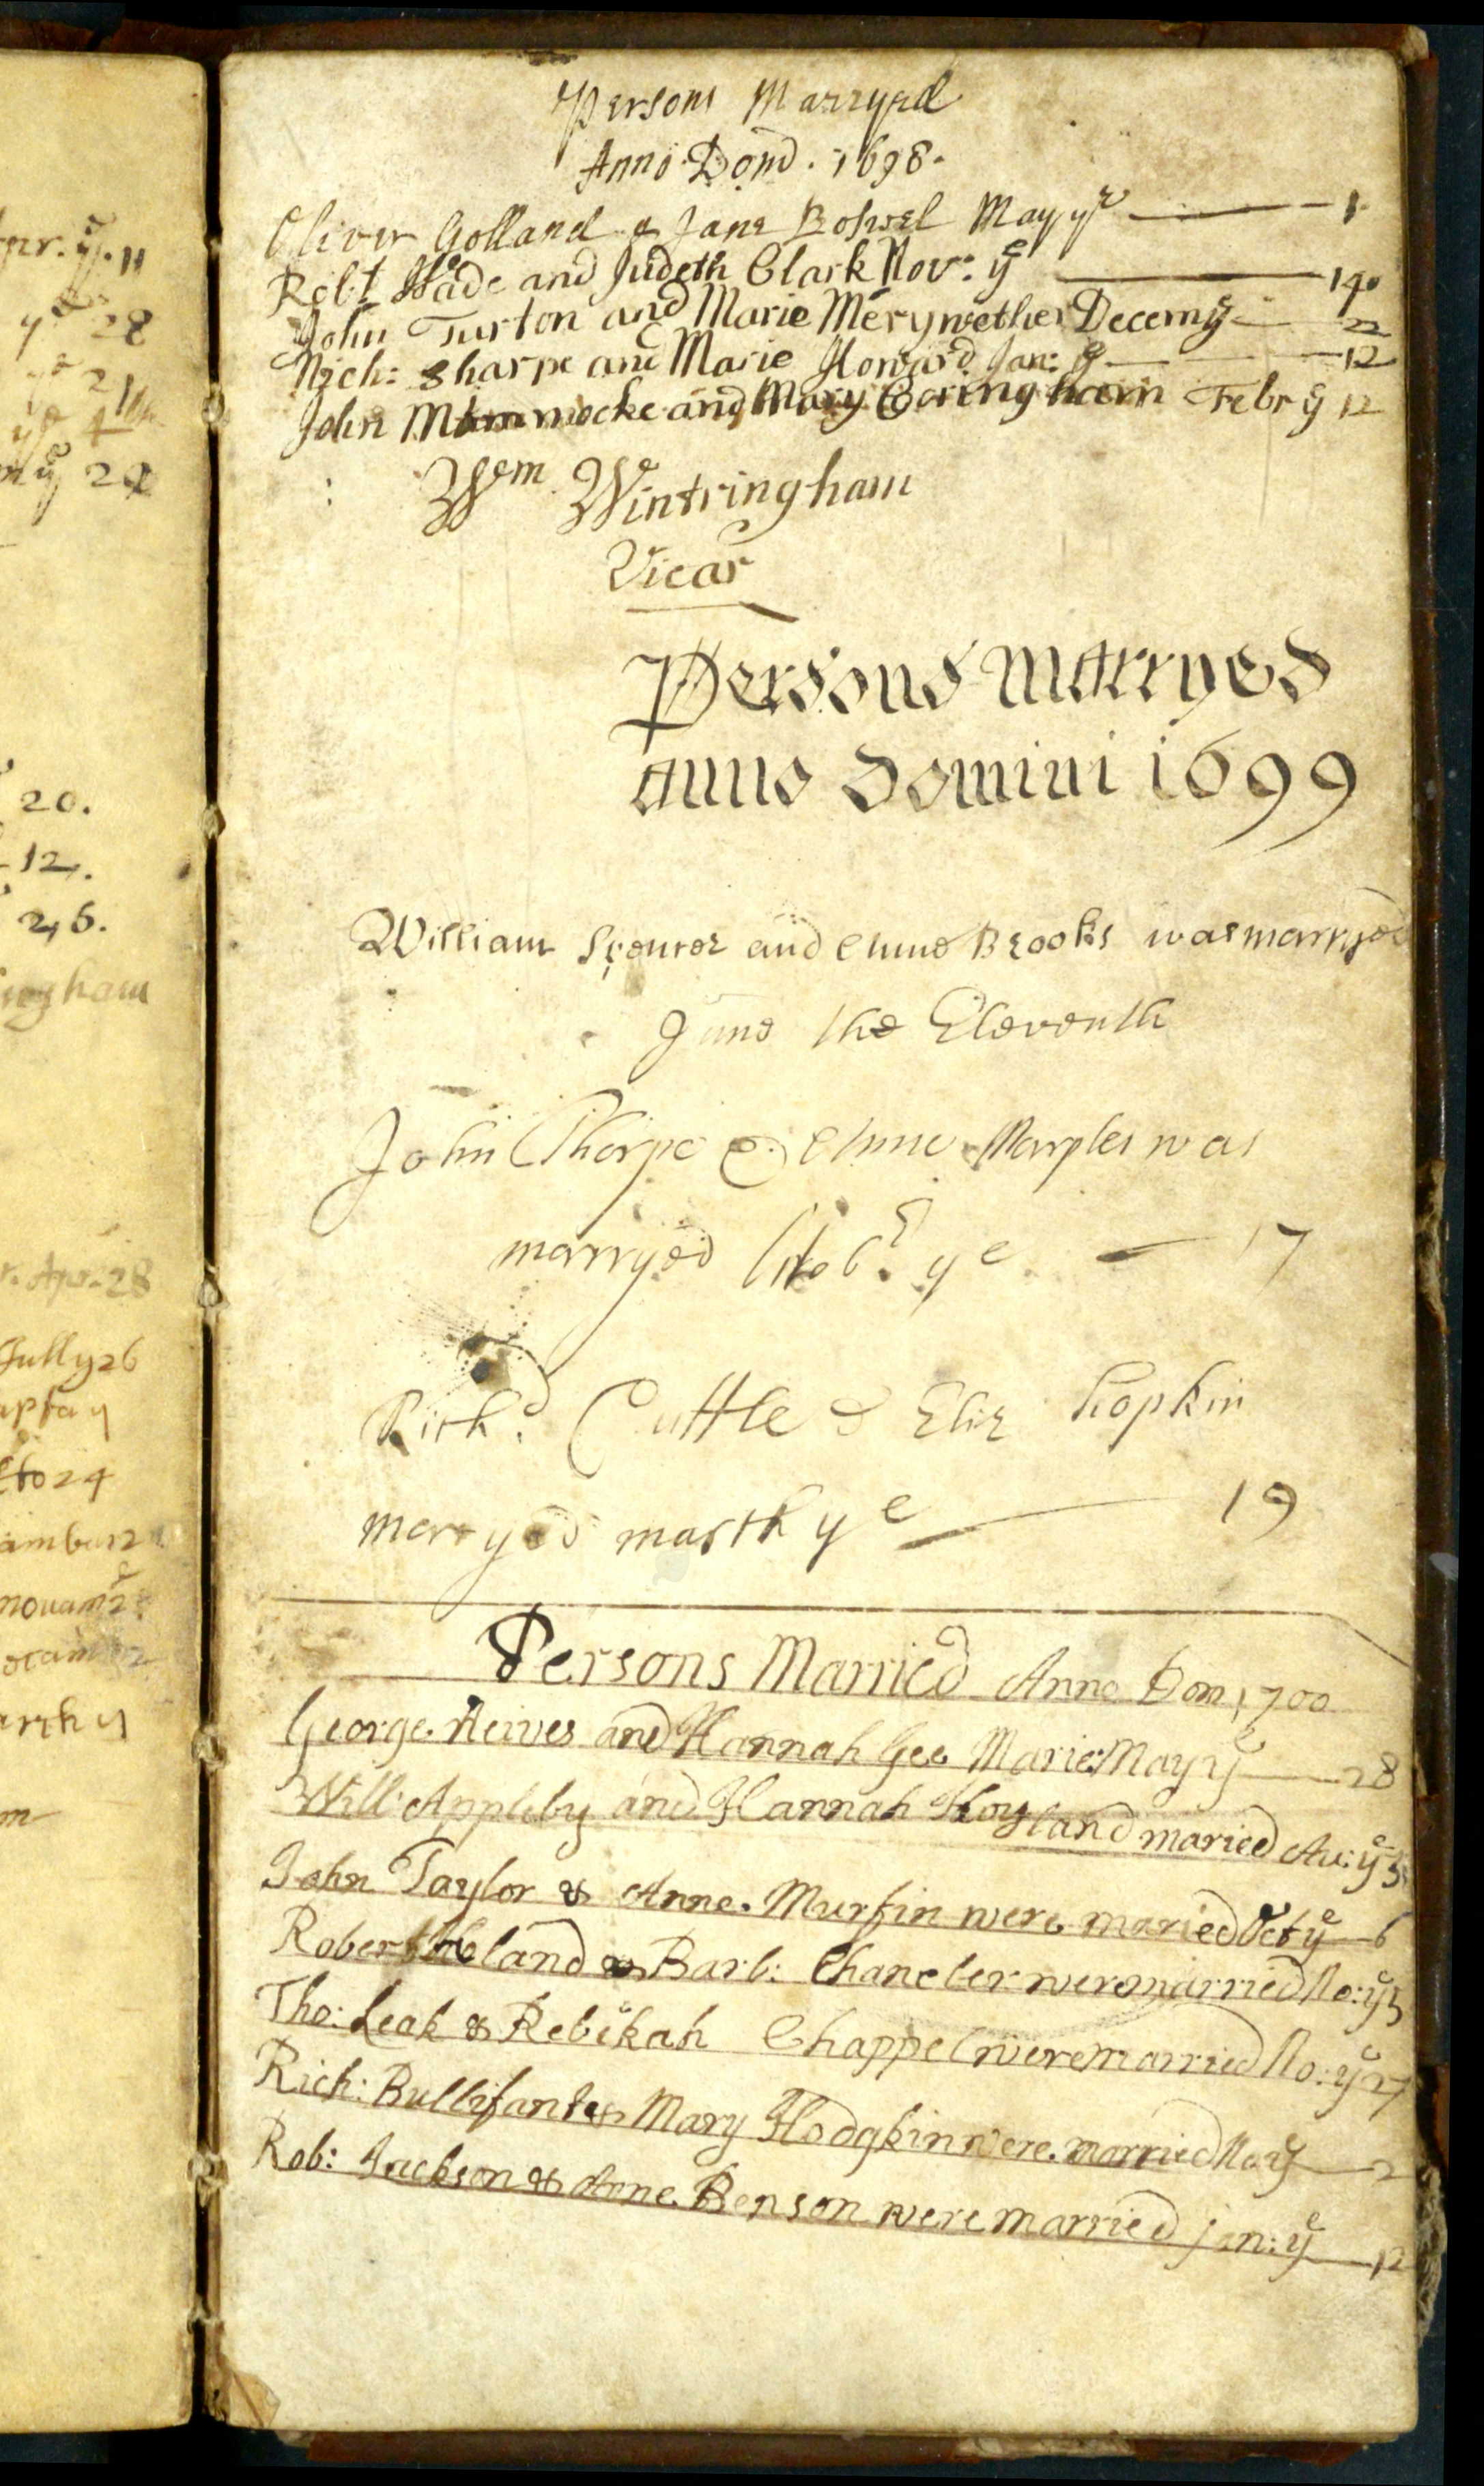 Persons Marryed
Anno Domd. 1698.
Oliver Golland & Jane Boswel May ye 1
Robt Wade and Judeth Clark Nov: ye 14
John Turton and Marie Merywether Decem ye 22
Nich: Sharpe and Marie Howard Jan: ye 12
John Mammocke and Mary Coringham Febr ye 12
Wem Wintringham
Vicar
Persons marryed
anno domini 1699
William Spenser and Anne Brooks was marryed
June the Eleventh
John Thorpe & Anne Marples was
marryed Octobr. ye 17
Richd. Cuttle & Eliz hopkin
marryed march ye 19
Persons Married Anno Dom 1700
George Reives and Hannah Gee Marie: May ye 28
Will: Appleby and Hannah Hoyland maried Au: ye 5
John Taylor & Anne Murfin were maried Oct ye 6
Robert land & Barb: Chaneler were married No: ye 5
Tho: Leak & Rebekah Chappel were married No: ye 27
Rich: Bullifant & Mary Hodgkin were married No ye 2
Rob: Jackson & Anne Benson were married jan: ye 12
pr. ye. 11
ye 28
ye 21
ye 4
ye 29
20.
12.
26.
ingham
Apr. 28
Jully 26
24
novam 2
m